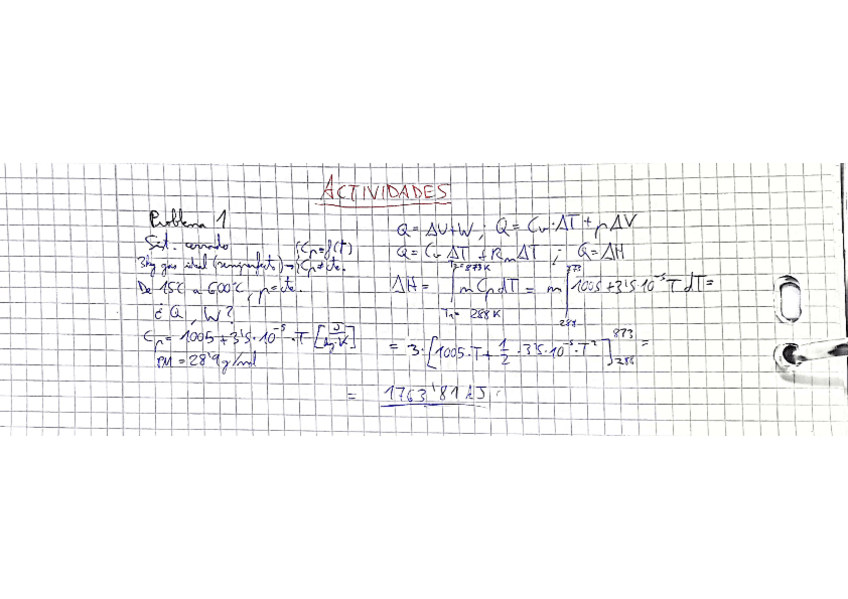 ACTIVIDADES
Problema 1
Sist. cerrado ¡Cp=f(t)
3kg gas ideal (semiperfecto) → ¡Cp≠cte.
De 15ºC a 600ºC, p=cte.
¿Q, W?
Cp = 1005 + 3'5·10⁻⁵·T [J/kg·K]
PM = 28'9 g/mol
Q = ΔU+W ; Q = Cv·ΔT + pΔV
Q = Cv ΔT + Rm ΔT ; Q = ΔH
ΔH = ∫ T1=288K T2=873K m Cp dT = m ∫ 288 873 1005 + 3'5·10⁻⁵ T dT =
= 3·[1005·T + 1/2·3'5·10⁻⁵·T²] 873 288 =
= 1763'81 kJ